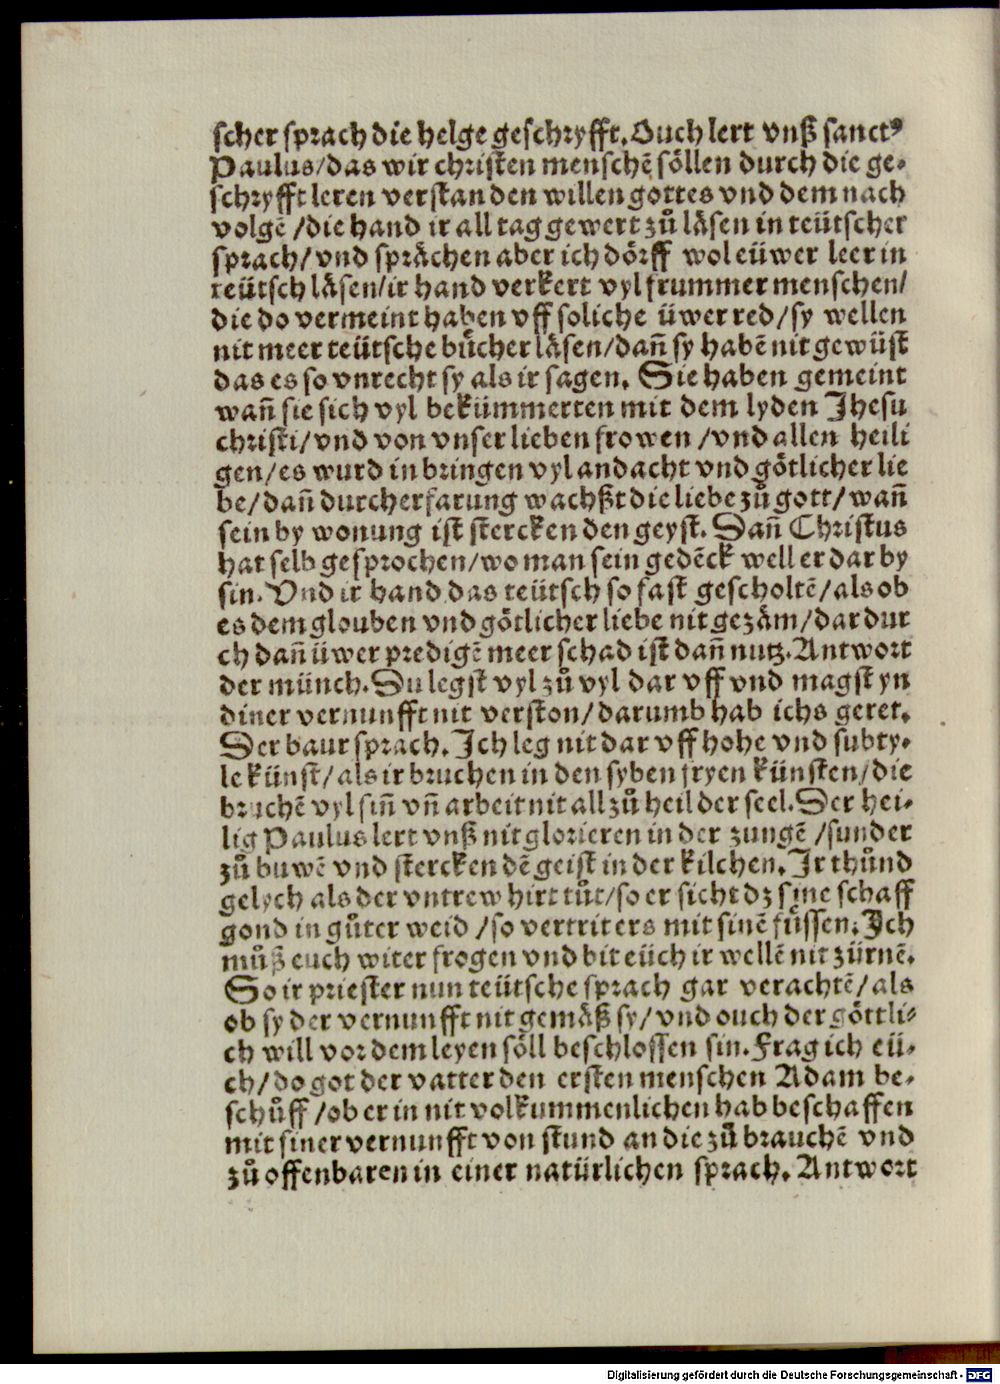 scher sprach die helge geschryfft. Ouch lert vnß sanctꝰ
Paulus/das wir christen menschẽ söllen durch die ge-
schryfft leren verstan den willen gottes vnd dem nach
volgẽ /die hand ir all tag gewert zů läsen in teütscher
sprach/ vnd sprächen aber ich dörff wol eüwer leer in
teütsch läsen/ir hand verkert vyl frummer menschen/
die do vermeint haben vff soliche üwer red/sy wellen
nit meer teütsche bücher läsen/dañ sy habẽ nit gewüst
das es so vnrecht sy als ir sagen. Sie haben gemeint
wañ sie sich vyl bekümmerten mit dem lyden Jhesu
christi/vnd von vnser lieben frowen /vnd allen heili
gen/es wurd in bringen vyl andacht vnd götlicher lie
be/dañ durch erfarung wachßt die liebe zů gott/ wañ
sein by wonung ist stercken den geyst. Dañ Christus
hat selb gesprochen/wo man sein gedẽck well er dar by
sin. Vnd ir hand das teütsch so fast gescholtẽ/als ob
es dem glouben vnd götlicher liebe nit gezäm/dar dur
ch dañ üwer predigẽ meer schad ist dañ nutz. Antwort
der münch. Du legst vyl zů vyl dar vff vnd magst yn
diner vernunfft nit verston/darumb hab ichs geret.
Der baur sprach. Ich leg nit dar vff hohe vnd subty-
le künst/als ir bruchen in den syben fryen künsten/die
bruchẽ vyl siñ vñ arbeit nit all zů heil der seel. Der hei-
lig Paulus lert vnß nit glorieren in der zungẽ /sunder
zů buwẽ vnd stercken dẽ geist in der kilchen. Ir thůnd
gelych als der vntrew hirt tůt/so er sicht dz sine schaff
gond in gůter weid /so vertrit ers mit sinẽ fůssen. Ich
můß euch witer frogen vnd bit eüch ir wellẽ nit zürnẽ.
So ir priester nun teütsche sprach gar verachtẽ/als
ob sy der vernunfft nit gemäß sy/vnd ouch der göttli-
ch will vor dem leyen söll beschlossen sin. Frag ich eü-
ch/do got der vatter den ersten menschen Adam be-
schůff /ob er in nit volkummenlichen hab beschaffen
mit siner vernunfft von stund an die zů brauchẽ vnd
zů offenbaren in einer natürlichen sprach. Antwort
Digitalisierung gefördert durch die Deutsche Forschungsgemeinschaft - DFG